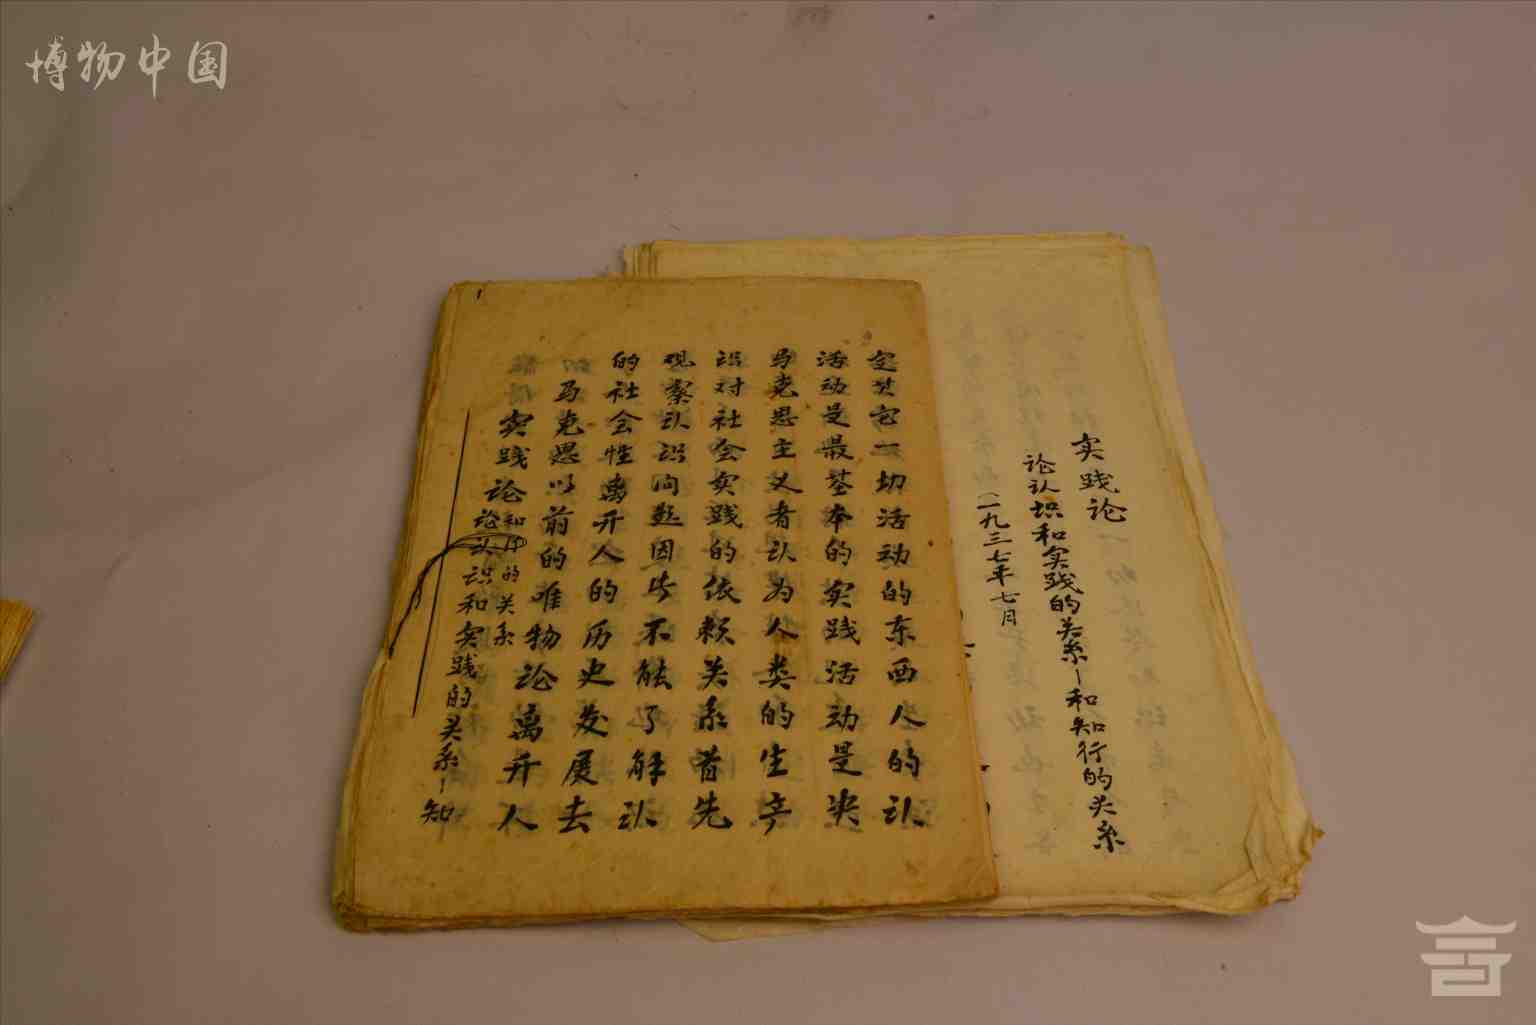 博物中国
实践论
论认识和实践的关系—知
和行的关系
马克思以前的唯物论离开人
的社会性离开人的历史发展去
观察认识问题因此不能了解认
识对社会实践的依赖关系首先
马克思主义者认为人类的生产
活动是最基本的实践活动是决
定其它一切活动的东西人的认
实践论
论认识和实践的关系—和知行的关系
(一九三七年七月